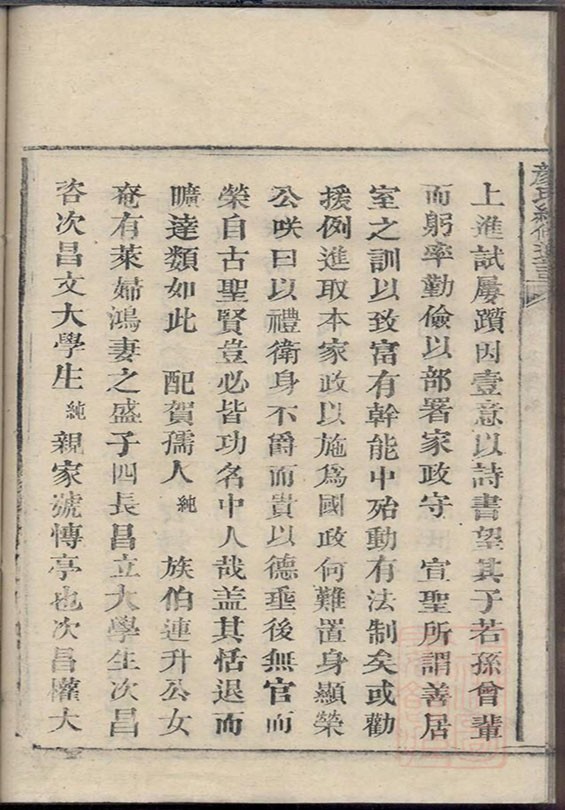 上進試屢躓因壹意以詩書望其子若孫曾輩
而躬率勤儉以部署家政守 宣聖所謂善居
室之訓以致富有幹能中殆動有法制矣或勸
援例進取本家政以施爲國政何難置身顯榮
公咲曰以禮衛身不爵而貴以德埀後無官而
榮自古聖賢豈必皆功名中人哉盖其恬退而
曠達類如此 配賀孺人 純 族伯連升公女
奄有萊婦鴻妻之盛子四長昌立大學生次昌
咨次昌文大學生 純 親家號愽亭也次昌權大